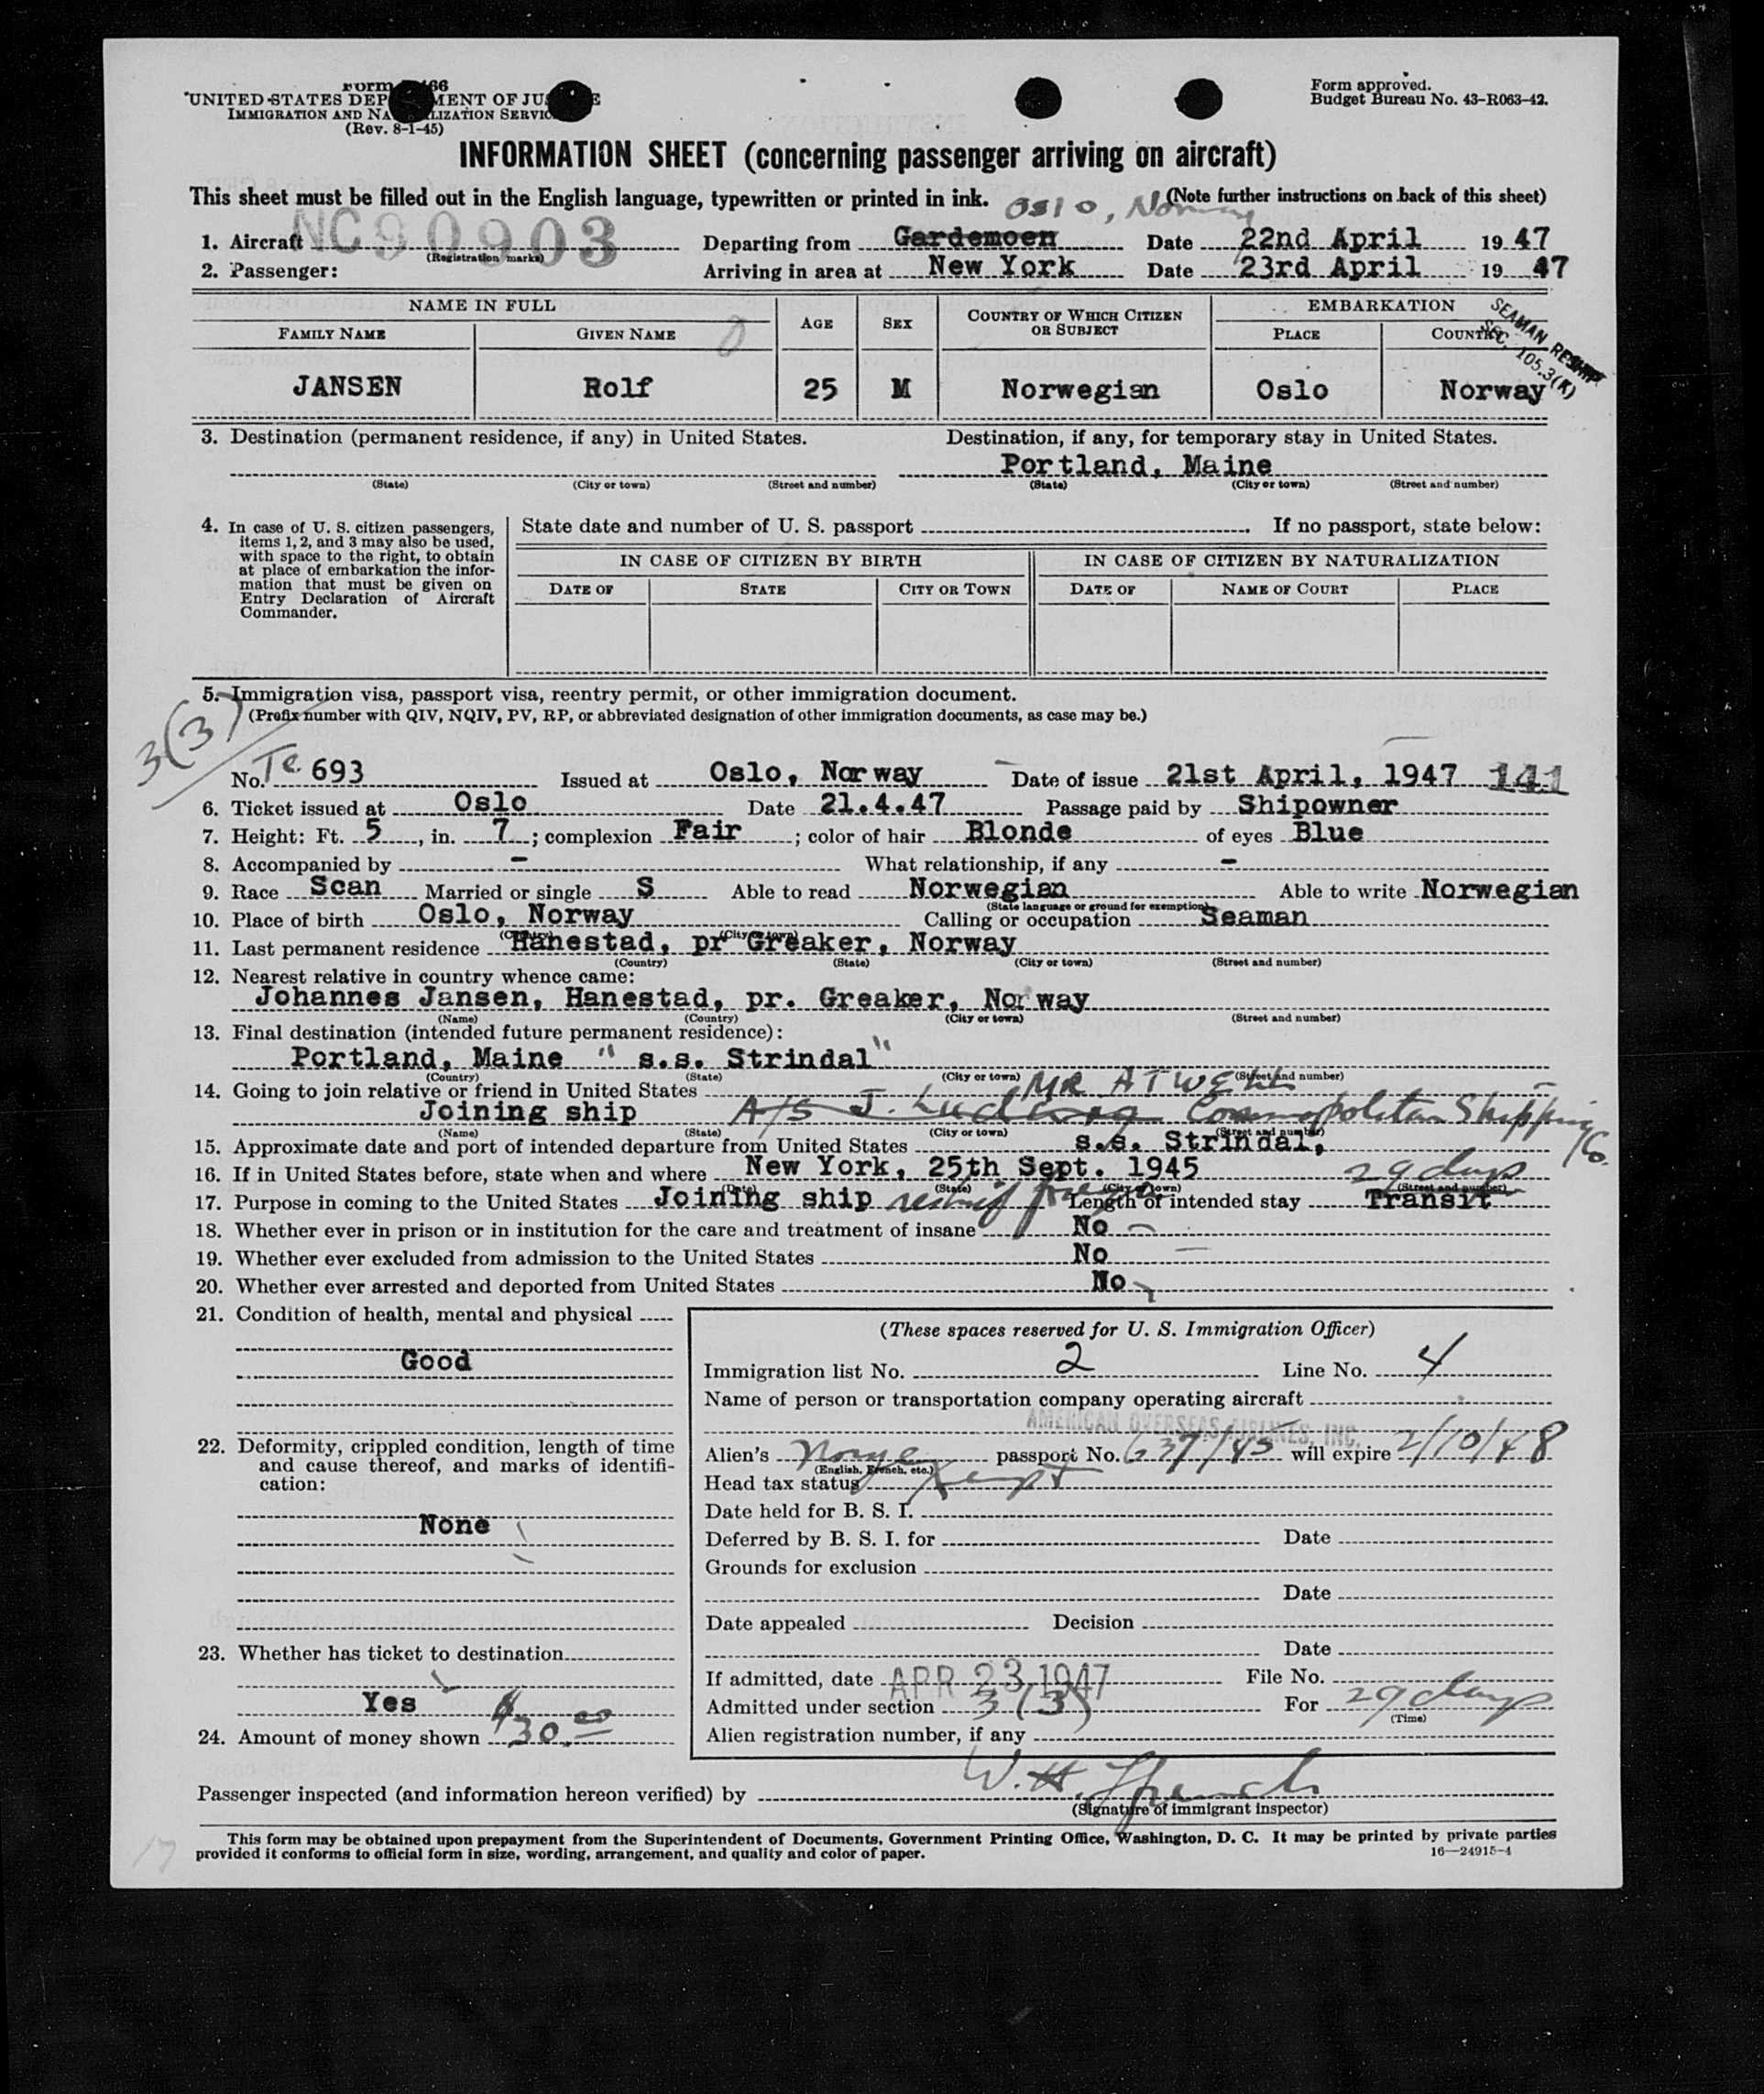 Form 466
UNITED STATES DEPARTMENT OF JUSTICE
IMMIGRATION AND NATURALIZATION SERVICE
(Rev. 8-1-45)
Form approved.
Budget Bureau No. 43-R063-42.
INFORMATION SHEET (concerning passenger arriving on aircraft)
This sheet must be filled out in the English language, typewritten or printed in ink. (Note further instructions on back of this sheet)
Oslo, Norway
1. Aircraft NC90903 Departing from Gardemoen Date 22nd April 1947
(Registration marks)
2. Passenger: Arriving in area at New York Date 23rd April 1947
NAME IN FULL AGE SEX COUNTRY OF WHICH CITIZEN OR SUBJECT EMBARKATION
FAMILY NAME GIVEN NAME PLACE COUNTRY
SEAMAN RESHIP
SEC. 105.3(K)
JANSEN Rolf 25 M Norwegian Oslo Norway
3. Destination (permanent residence, if any) in United States. Destination, if any, for temporary stay in United States.
Portland, Maine
(State) (City or town) (Street and number) (State) (City or town) (Street and number)
4. In case of U. S. citizen passengers, items 1, 2, and 3 may also be used, with space to the right, to obtain at place of embarkation the information that must be given on Entry Declaration of Aircraft Commander.
State date and number of U. S. passport. If no passport, state below:
IN CASE OF CITIZEN BY BIRTH IN CASE OF CITIZEN BY NATURALIZATION
DATE OF STATE CITY OR TOWN DATE OF NAME OF COURT PLACE
5. Immigration visa, passport visa, reentry permit, or other immigration document.
(Prefix number with QIV, NQIV, PV, RP, or abbreviated designation of other immigration documents, as case may be.)
3(3)
No. Tc 693 Issued at Oslo, Norway Date of issue 21st April, 1947 141
6. Ticket issued at Oslo Date 21.4.47 Passage paid by Shipowner
7. Height: Ft. 5, in. 7; complexion Fair; color of hair Blonde of eyes Blue
8. Accompanied by - What relationship, if any -
9. Race Scan Married or single S Able to read Norwegian Able to write Norwegian
(State language or ground for exemption)
10. Place of birth Oslo, Norway Calling or occupation Seaman
(Country) (City or town)
11. Last permanent residence Hanestad, pr Greaker, Norway
(Country) (State) (City or town) (Street and number)
12. Nearest relative in country whence came:
Johannes Jansen, Hanestad, pr. Greaker, Norway
(Name) (Country) (City or town) (Street and number)
13. Final destination (intended future permanent residence):
Portland, Maine " s.s. Strindal"
(Country) (State) (City or town) (Street and number)
14. Going to join relative or friend in United States MR ATWELL
Joining ship A/S J. Cosmopolitan Shipping Co.
(Name) (State) (City or town) (Street and number)
15. Approximate date and port of intended departure from United States s.s. Strindal,
16. If in United States before, state when and where New York, 25th Sept. 1945 29 days
(Date) (State) (City or town) (Street and number)
17. Purpose in coming to the United States Joining ship reship foreign Length of intended stay Transit
18. Whether ever in prison or in institution for the care and treatment of insane No
19. Whether ever excluded from admission to the United States No
20. Whether ever arrested and deported from United States No
21. Condition of health, mental and physical
Good
22. Deformity, crippled condition, length of time and cause thereof, and marks of identification:
None
23. Whether has ticket to destination
Yes
24. Amount of money shown $30.00
(These spaces reserved for U. S. Immigration Officer)
Immigration list No. 2 Line No. 4
Name of person or transportation company operating aircraft
AMERICAN OVERSEAS AIRLINES, INC.
Alien's Norge passport No. 637/45 will expire 2/10/48
(English, French, etc.)
Head tax status Exempt
Date held for B. S. I.
Deferred by B. S. I. for Date
Grounds for exclusion
Date
Date appealed Decision
Date
If admitted, date APR 23 1947 File No.
Admitted under section 3(3) For 29 days
(Time)
Alien registration number, if any
Passenger inspected (and information hereon verified) by W. H.
(Signature of immigrant inspector)
This form may be obtained upon prepayment from the Superintendent of Documents, Government Printing Office, Washington, D. C. It may be printed by private parties
provided it conforms to official form in size, wording, arrangement, and quality and color of paper.
16—24915-4
17